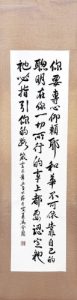 你要專心仰賴耶和華不可依靠自己的
聰明在你一切所行的事上都要認定祂
祂必指引你的路